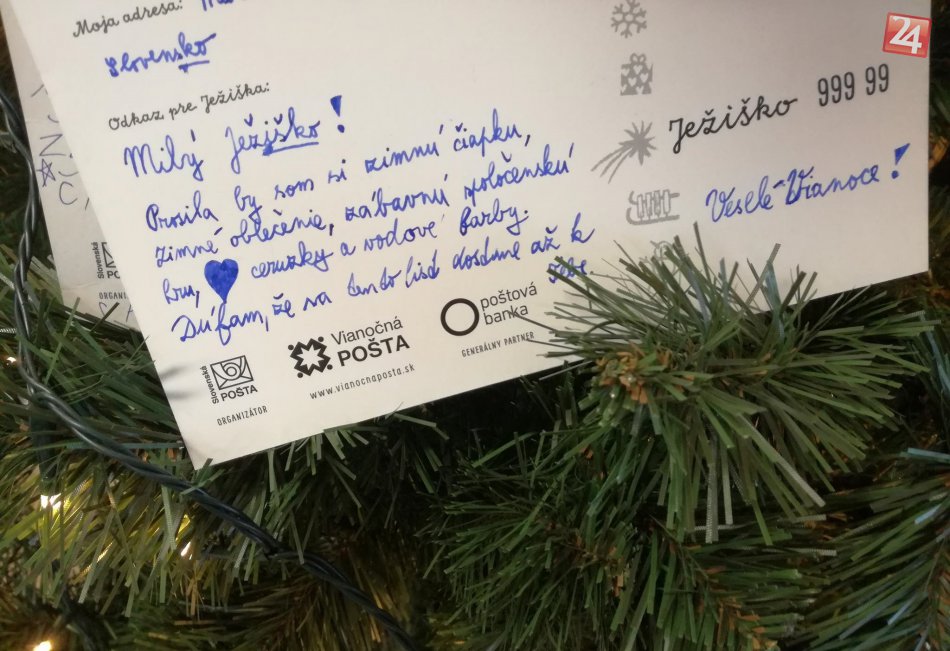 Moja adresa:
Slovensko
Odkaz pre Ježiška:
Milý Ježiško!
Prosila by som si zimnú čiapku,
zimné oblečenie, zábavnú spoločenskú
hru, ceruzky a vodové farby.
Dúfam, že sa tento list dostane až k
tebe.
Slovenská
POŠTA
ORGANIZÁTOR
Vianočná
POŠTA
www.vianocnaposta.sk
poštová
banka
GENERÁLNY PARTNER
Ježiško 999 99
Veselé Vianoce!
24
Slovenská